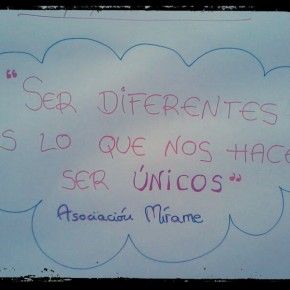 "SER DIFERENTES
S LO QUE NOS HACE
SER ÚNICOS"
Asociación Mírame